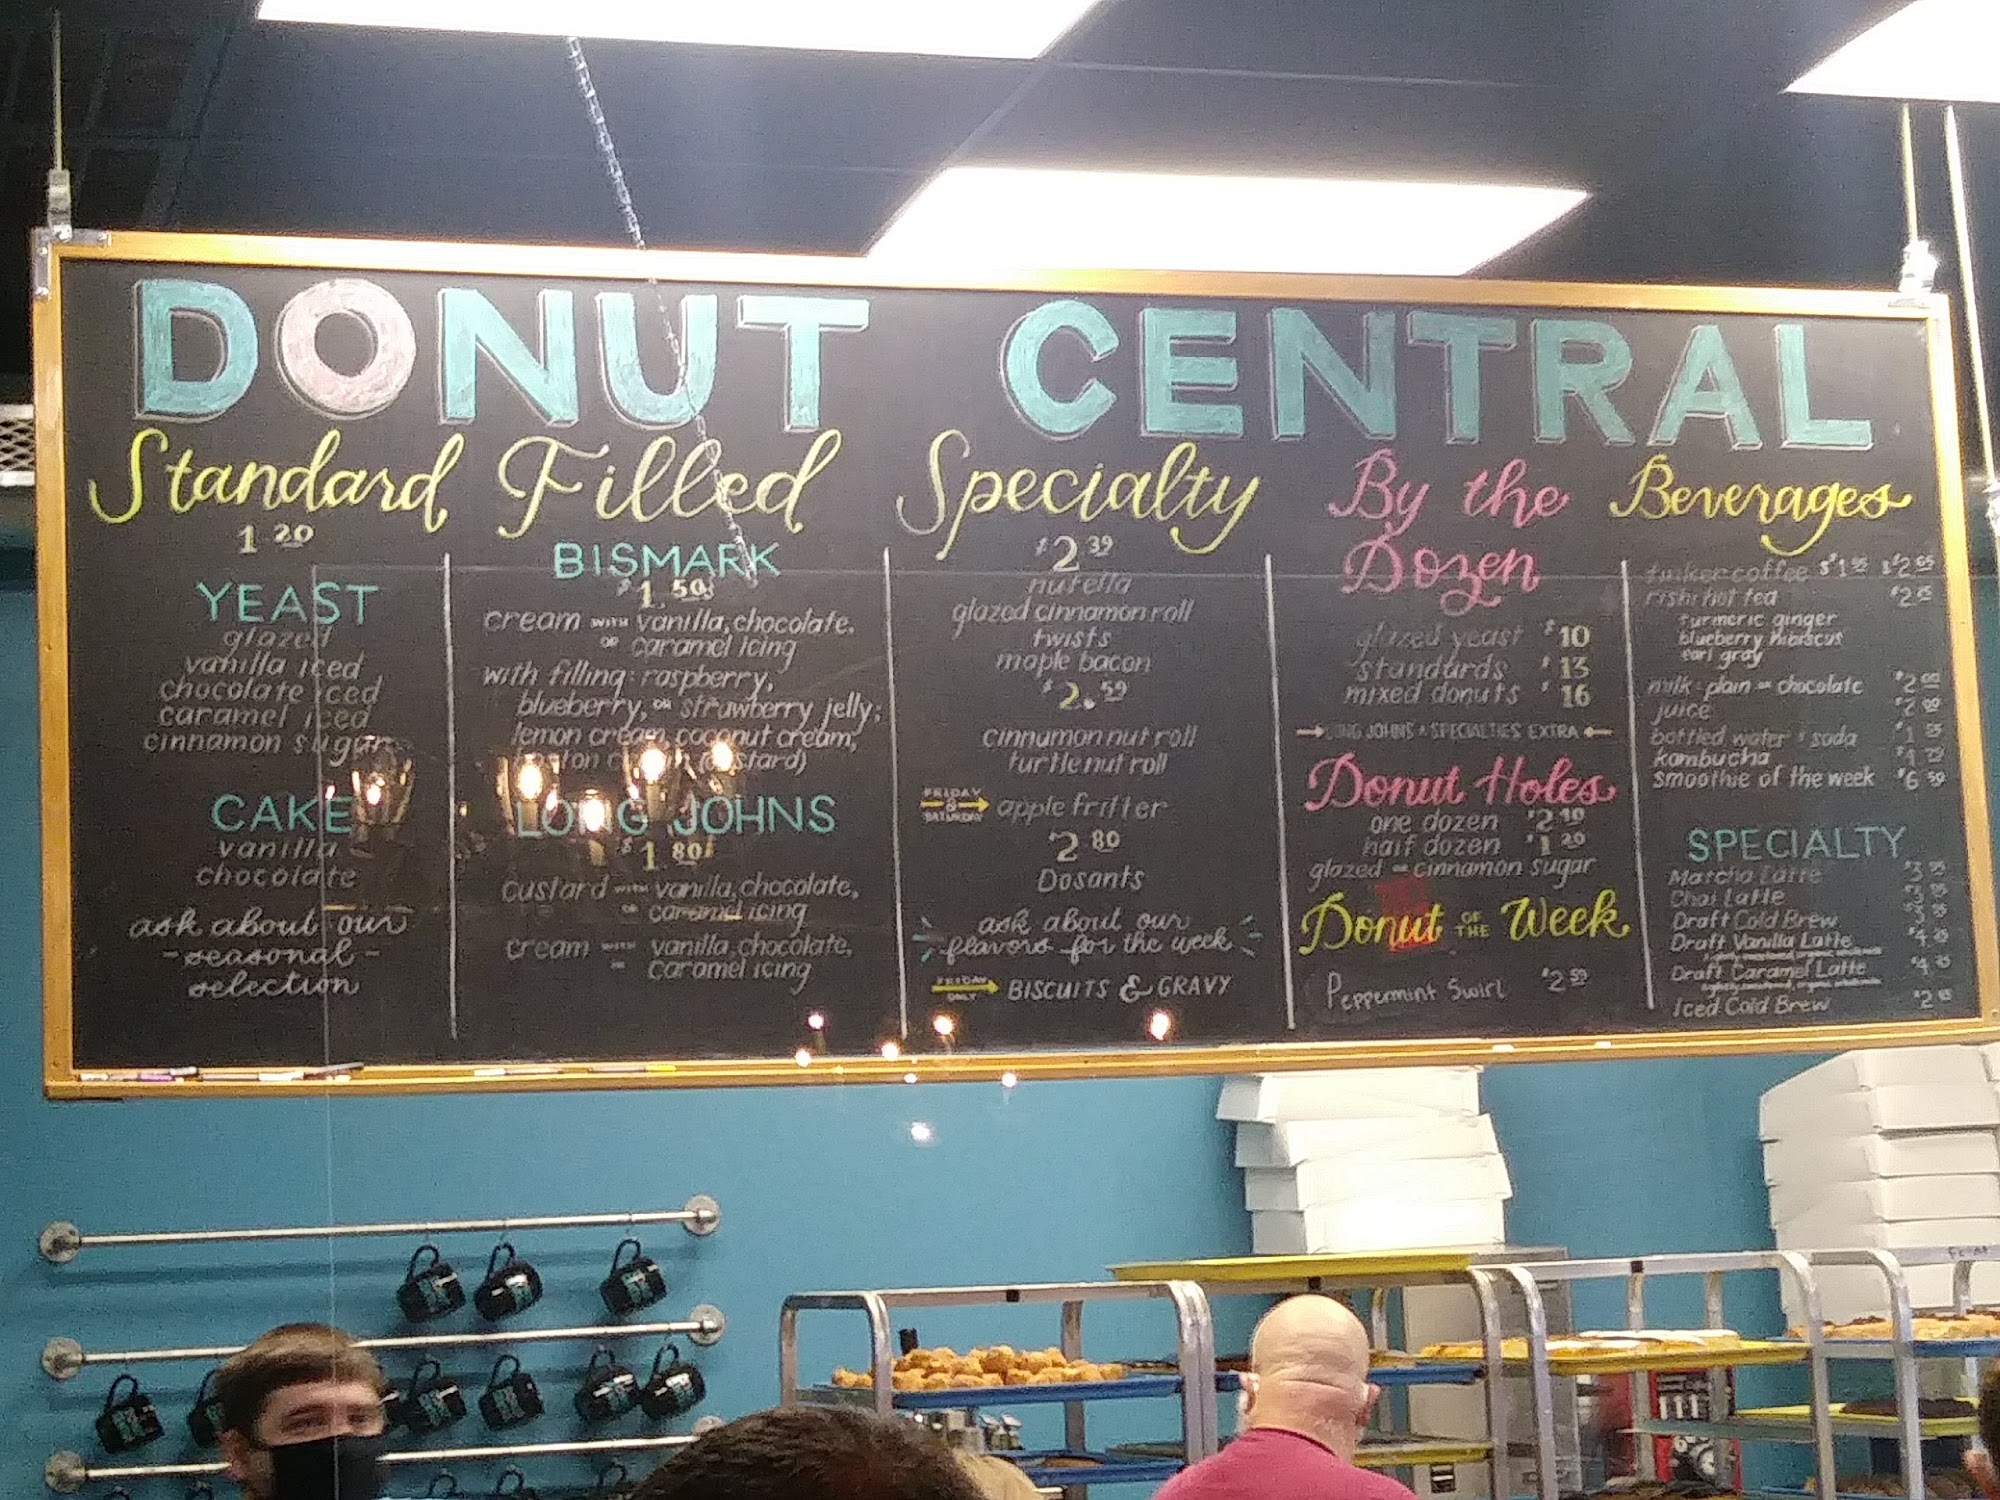 DONUT CENTRAL
Standard
1 20
YEAST
glazed
vanilla iced
chocolate iced
caramel iced
cinnamon sugar
CAKE
vanilla
chocolate
ask about our
- seasonal -
selection
Filled
BISMARK
$1.50
cream with vanilla, chocolate,
or caramel icing
with filling: raspberry,
blueberry, or strawberry jelly;
lemon cream, coconut cream,
LONG JOHNS
$1.80
custard with vanilla, chocolate,
or caramel icing
cream with vanilla, chocolate,
or caramel icing
Specialty
$2 39
nutella
glazed cinnamon roll
twists
maple bacon
$2.59
cinnamon nut roll
turtle nut roll
FRIDAY & SATURDAY apple fritter
$2 80
Dosants
ask about our
flavors for the week
FRIDAY ONLY BISCUITS & GRAVY
By the
Dozen
glazed yeast $10
standards $13
mixed donuts $16
LONG JOHNS & SPECIALTIES EXTRA
Donut Holes
one dozen $2 10
half dozen $1 20
glazed or cinnamon sugar
Donut OF THE Week
Peppermint Swirl $2 59
Beverages
coffee
rishi hot tea
turmeric ginger
blueberry hibiscus
earl gray
milk: plain or chocolate $2 00
juice $2 00
bottled water soda
kombucha
smoothie of the week $6 50
SPECIALTY
Matcha Latte
Chai Latte
Draft Cold Brew
Draft Vanilla Latte
Draft Caramel Latte
Iced Cold Brew